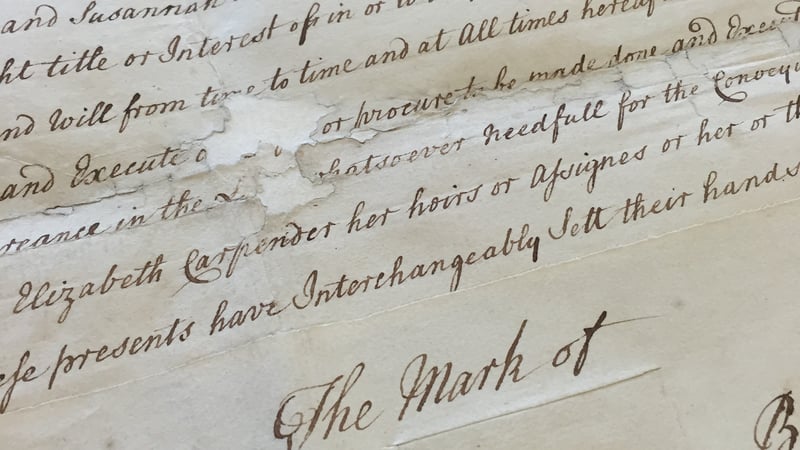 and Susannah
ht title or Interest of in or to
nd will from time to time and at All times hereaf
and Execute or procure to be made done and Execut
reance in the whatsoever needfull for the Convey
Elizabeth Carpender her heirs or Assignes or her or th
ese presents have Interchangeably Sett their hands
The Mark of
B